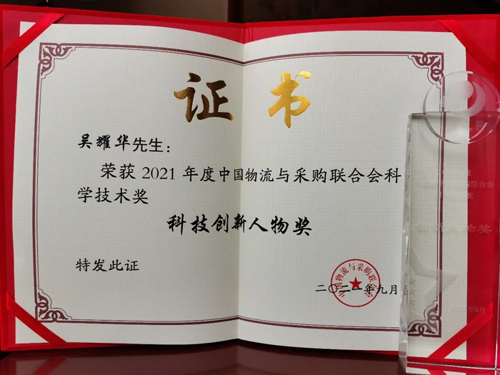 证书
吴耀华先生：
荣获2021年度中国物流与采购联合会科
学技术奖
科技创新人物奖
特发此证
二〇二一年九月
中国物流与采购联合会